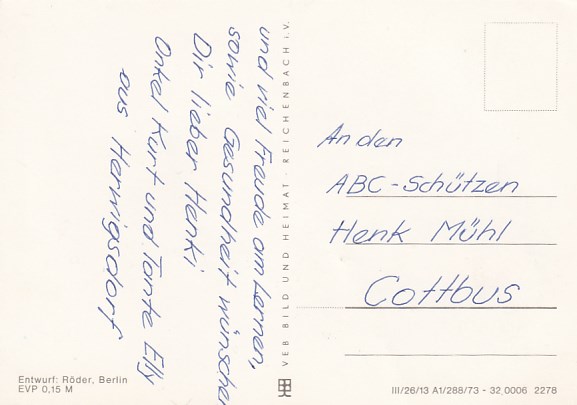 und viel Freude am Lernen,
sowie Gesundheit wünschen
Dir lieber Henki
Onkel Kurt und Tante Elly
aus Herwigsdorf
Entwurf: Röder, Berlin
EVP 0,15 M
VEB BILD UND HEIMAT · REICHENBACH i. V.
An den
ABC-Schützen
Henk Mühl
Cottbus
III/26/13 A1/288/73 - 32 0006 2278